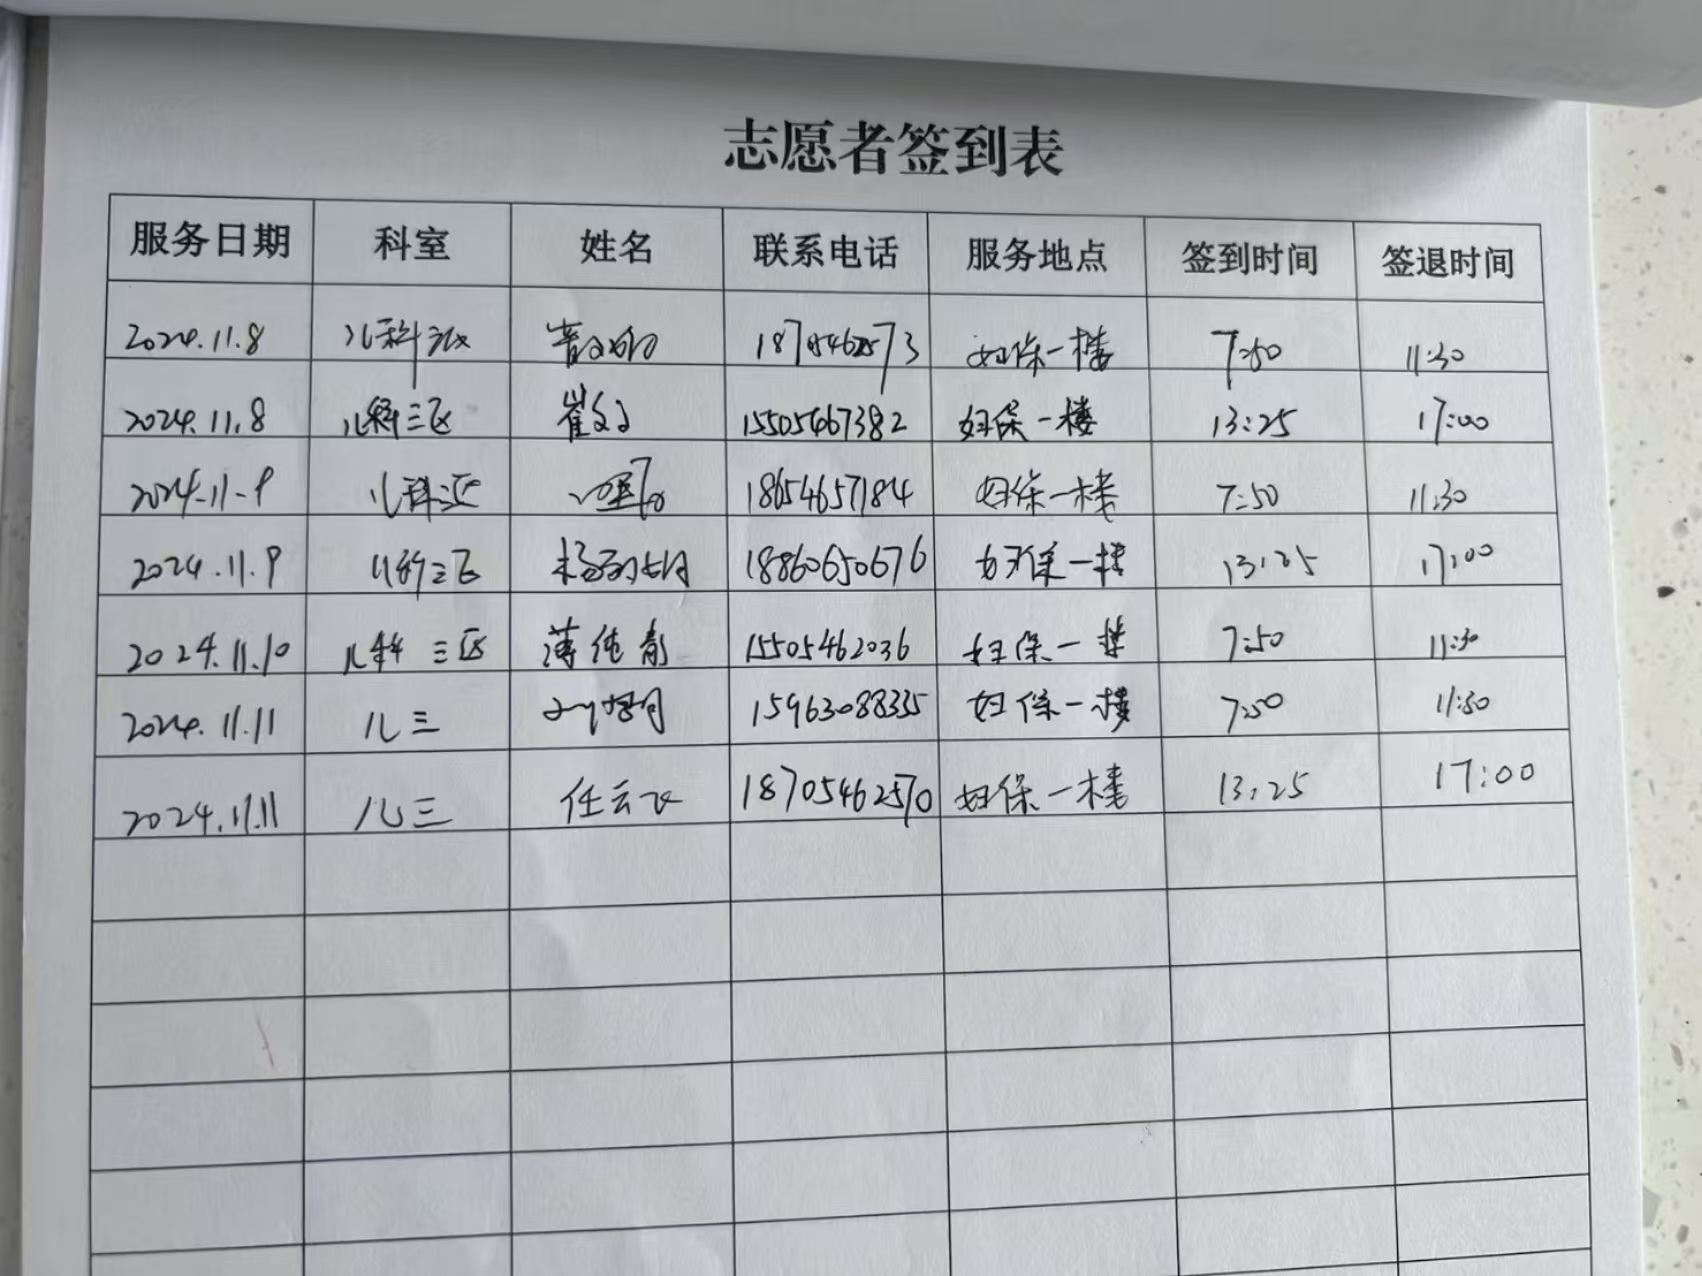 志愿者签到表
服务日期 科室 姓名 联系电话 服务地点 签到时间 签退时间
2024.11.8 儿科三区 18705462573 妇保一楼 7:50 11:30
2024.11.8 儿科三区 崔 15505467382 妇保一楼 13:25 17:00
2024-11-9 儿科三区 18654657184 妇保一楼 7:50 11:30
2024.11.9 儿科三区 杨 18860650676 妇保一楼 13:25 17:00
2024.11.10 儿科三区 薄纯青 15505462036 妇保一楼 7:50 11:30
2024.11.11 儿三 15963088335 妇保一楼 7:50 11:30
2024.11.11 儿三 任云飞 18705462570 妇保一楼 13:25 17:00